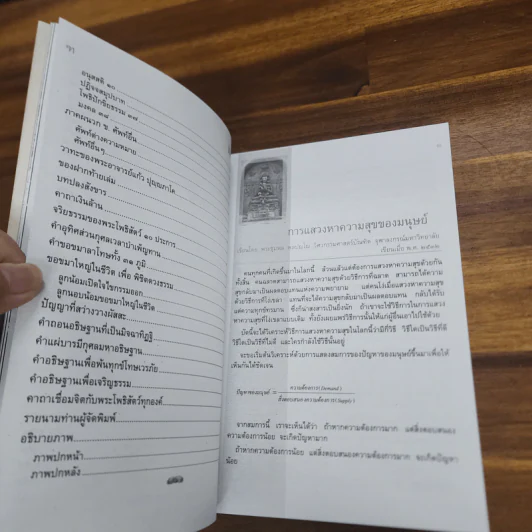 อนุสสติ ๑๐
ปฏิจจสมุปบาท
โพธิปักขิยธรรม ๓๗
มงคล ๓๘
ภาคผนวก ข. ศัพท์อื่น
ศัพท์ต่างความหมาย
ศัพท์อื่นๆ
วาทะของพระอาจารย์แก้ว
ของฝากท้ายเล่ม
บทปลงสังขาร
คาถาเงินล้าน
จริยธรรมของพระโพธิสัตว์ ๑๐ ประการ
คำอุทิศส่วนกุศลเวลาบำเพ็ญทาน
คำขอขมาลาโทษทั้ง ๓๑ ภูมิ
ขอขมาใหญ่ในชีวิต เพื่อ พิชิตดวงธรรม
ลูกน้อมเปิดใจไขกรรมออก
ลูกนอบน้อมขอขมาใหญ่ในชีวิต
ปัญญาที่สว่างวางผัสสะ
คำถอนอธิษฐานที่เป็นมิจฉาทิฏฐิ
คำแผ่บารมีกุศลมหาอธิษฐาน
คำอธิษฐานเพื่อพ้นทุกข์โทษเวรภัย
คำอธิษฐานเพื่อเจริญธรรม
คาถาเชื่อมจิตกับพระโพธิสัตว์ทุกองค์
รายนามท่านผู้จัดพิมพ์
อธิบายภาพ
ภาพปกหน้า
ภาพปกหลัง
การแสวงหาความสุขของมนุษย์
คนทุกคนที่เกิดขึ้นมาในโลกนี้ ล้วนแล้วแต่ต้องการแสวงหาความสุขด้วยกัน
ทั้งสิ้น คนฉลาดสามารถแสวงหาความสุขด้วยวิธีการที่ฉลาด สามารถได้ความ
สุขกลับมาเป็นผลตอบแทนแห่งความพยายาม แต่คนโง่เมื่อแสวงหาความสุข
ด้วยวิธีการที่โง่เขลา แทนที่จะได้ความสุขกลับมาเป็นผลตอบแทน กลับได้รับ
แต่ความทุกข์ทรมาน ซึ่งกำลังสาระเป็นยิ่งนัก ถ้าเขาจะใช้วิธีการในการแสวง
หาความสุขที่โง่เขลาแบบเดิม ทั้งยังเผยแพร่วิธีการนั้นให้แก่ผู้อื่นเอาไปใช้อีกด้วย
บัดนี้จะได้วิเคราะห์วิธีการแสวงหาความสุขในโลกนี้ว่ามีกี่วิธี วิธีใดเป็นวิธีที่ดี
วิธีใดเป็นวิธีที่ไม่ดี และใครกำลังใช้วิธีนั้นอยู่
จะขอเริ่มต้นวิเคราะห์ด้วยการแสดงสมการของปัญหาของมนุษย์ขึ้นมาเพื่อให้
เห็นกันได้ชัดเจน
ปัญหาของมนุษย์ = ความต้องการ (Demand)
สิ่งตอบสนองความต้องการ (Supply)
จากสมการนี้ เราจะเห็นได้ว่า ถ้าหากความต้องการมาก แต่สิ่งตอบสนอง
ความต้องการน้อย จะเกิดปัญหามาก
ถ้าหากความต้องการน้อย แต่สิ่งตอบสนองความต้องการมาก จะเกิดปัญหา
น้อย